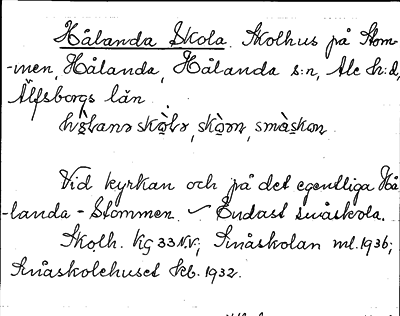 Hålanda Skola. Skolhus på Stom-
-men, Hålanda, Hålanda s:n, Ale h:d,
Älfsborgs län
Vid kyrkan och på det egentliga Hå-
-landa-Stommen. Endast småskola.
Skolh. KG 33 NV; Småskolan ml. 1936;
Småskolehuset kb. 1932.